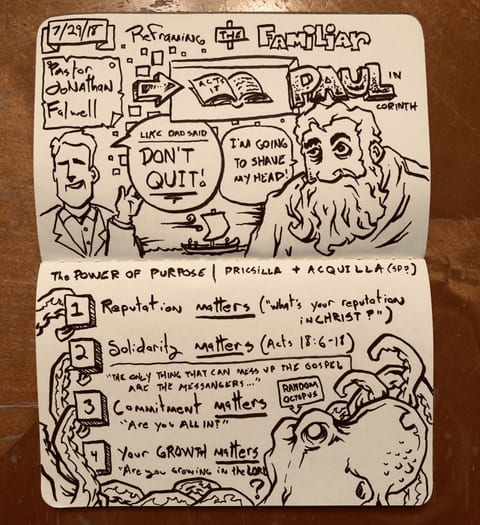 7/29/18
Reframing THE Familiar
Pastor
Jonathan
Falwell
ACTS
18
PAUL IN
CORINTH
LIKE DAD SAID
DON'T
QUIT!
I'M GOING
TO SHAVE
MY HEAD!
The POWER OF PURPOSE | PRICSILLA + ACQUILLA (SP?)
1 Reputation matters ("What's your reputation
IN CHRIST?")
2 Solidarity matters (Acts 18:6-18)
"THE ONLY THING THAT CAN MESS UP THE GOSPEL
ARE THE MESSANGERS..."
3 Commitment matters
"Are you ALL IN?"
RANDOM
OCTOPUS
4 Your GROWTH matters
"Are you growing in the LORD
?